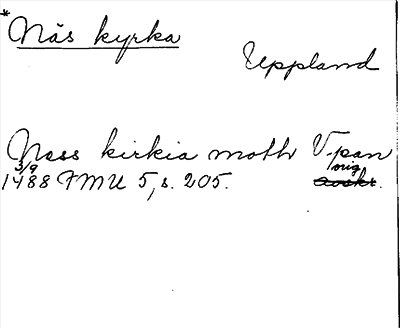 * Näs kyrka
Uppland
Næss kirkia moth Uppan
3/9 orig
1488 FMU 5, s. 205. avskr.